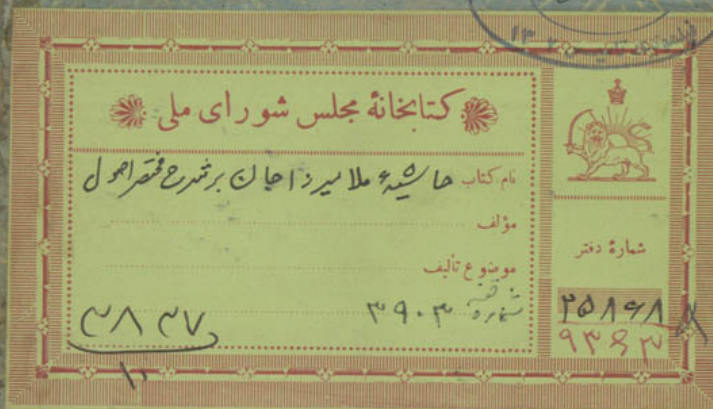 ۱۳۰۲
کتابخانهٔ مجلس شورای ملی
نام کتاب حاشیهٔ ملا میرزا جان بر شرح مختصر اصول
مؤلف
موضوع تألیف
شماره قفسه ۳۹۰۳
شمارهٔ دفتر
۲۵۸۶۸
۹۳۶۳
۳۸۳۷
۱۰